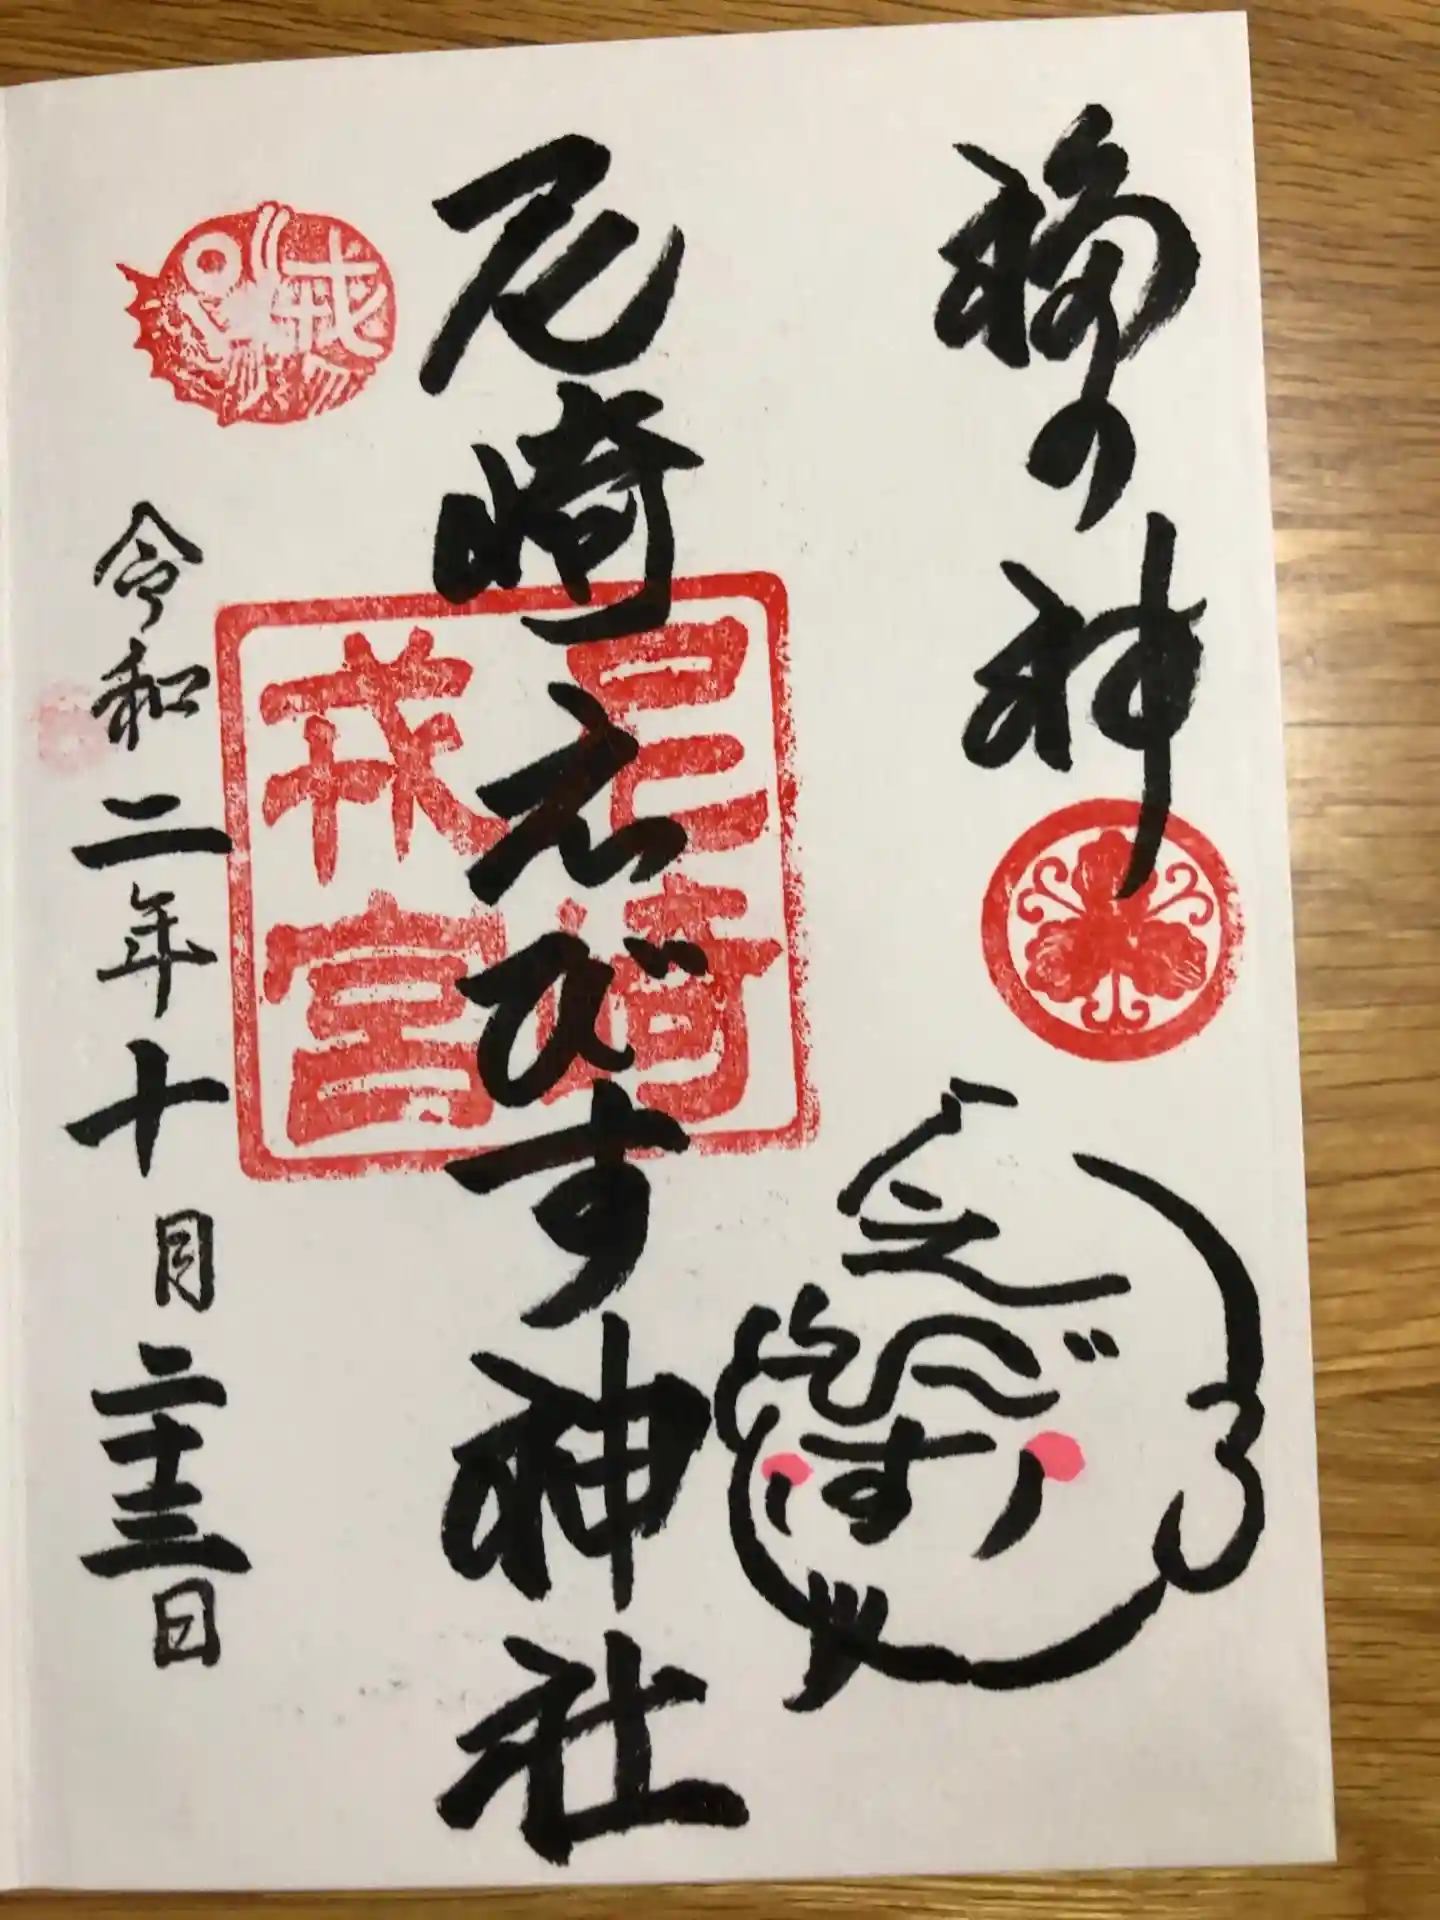 福の神
えびす
尾崎えびす神社
尼崎戎宮
戎
令和二年十月二十三日